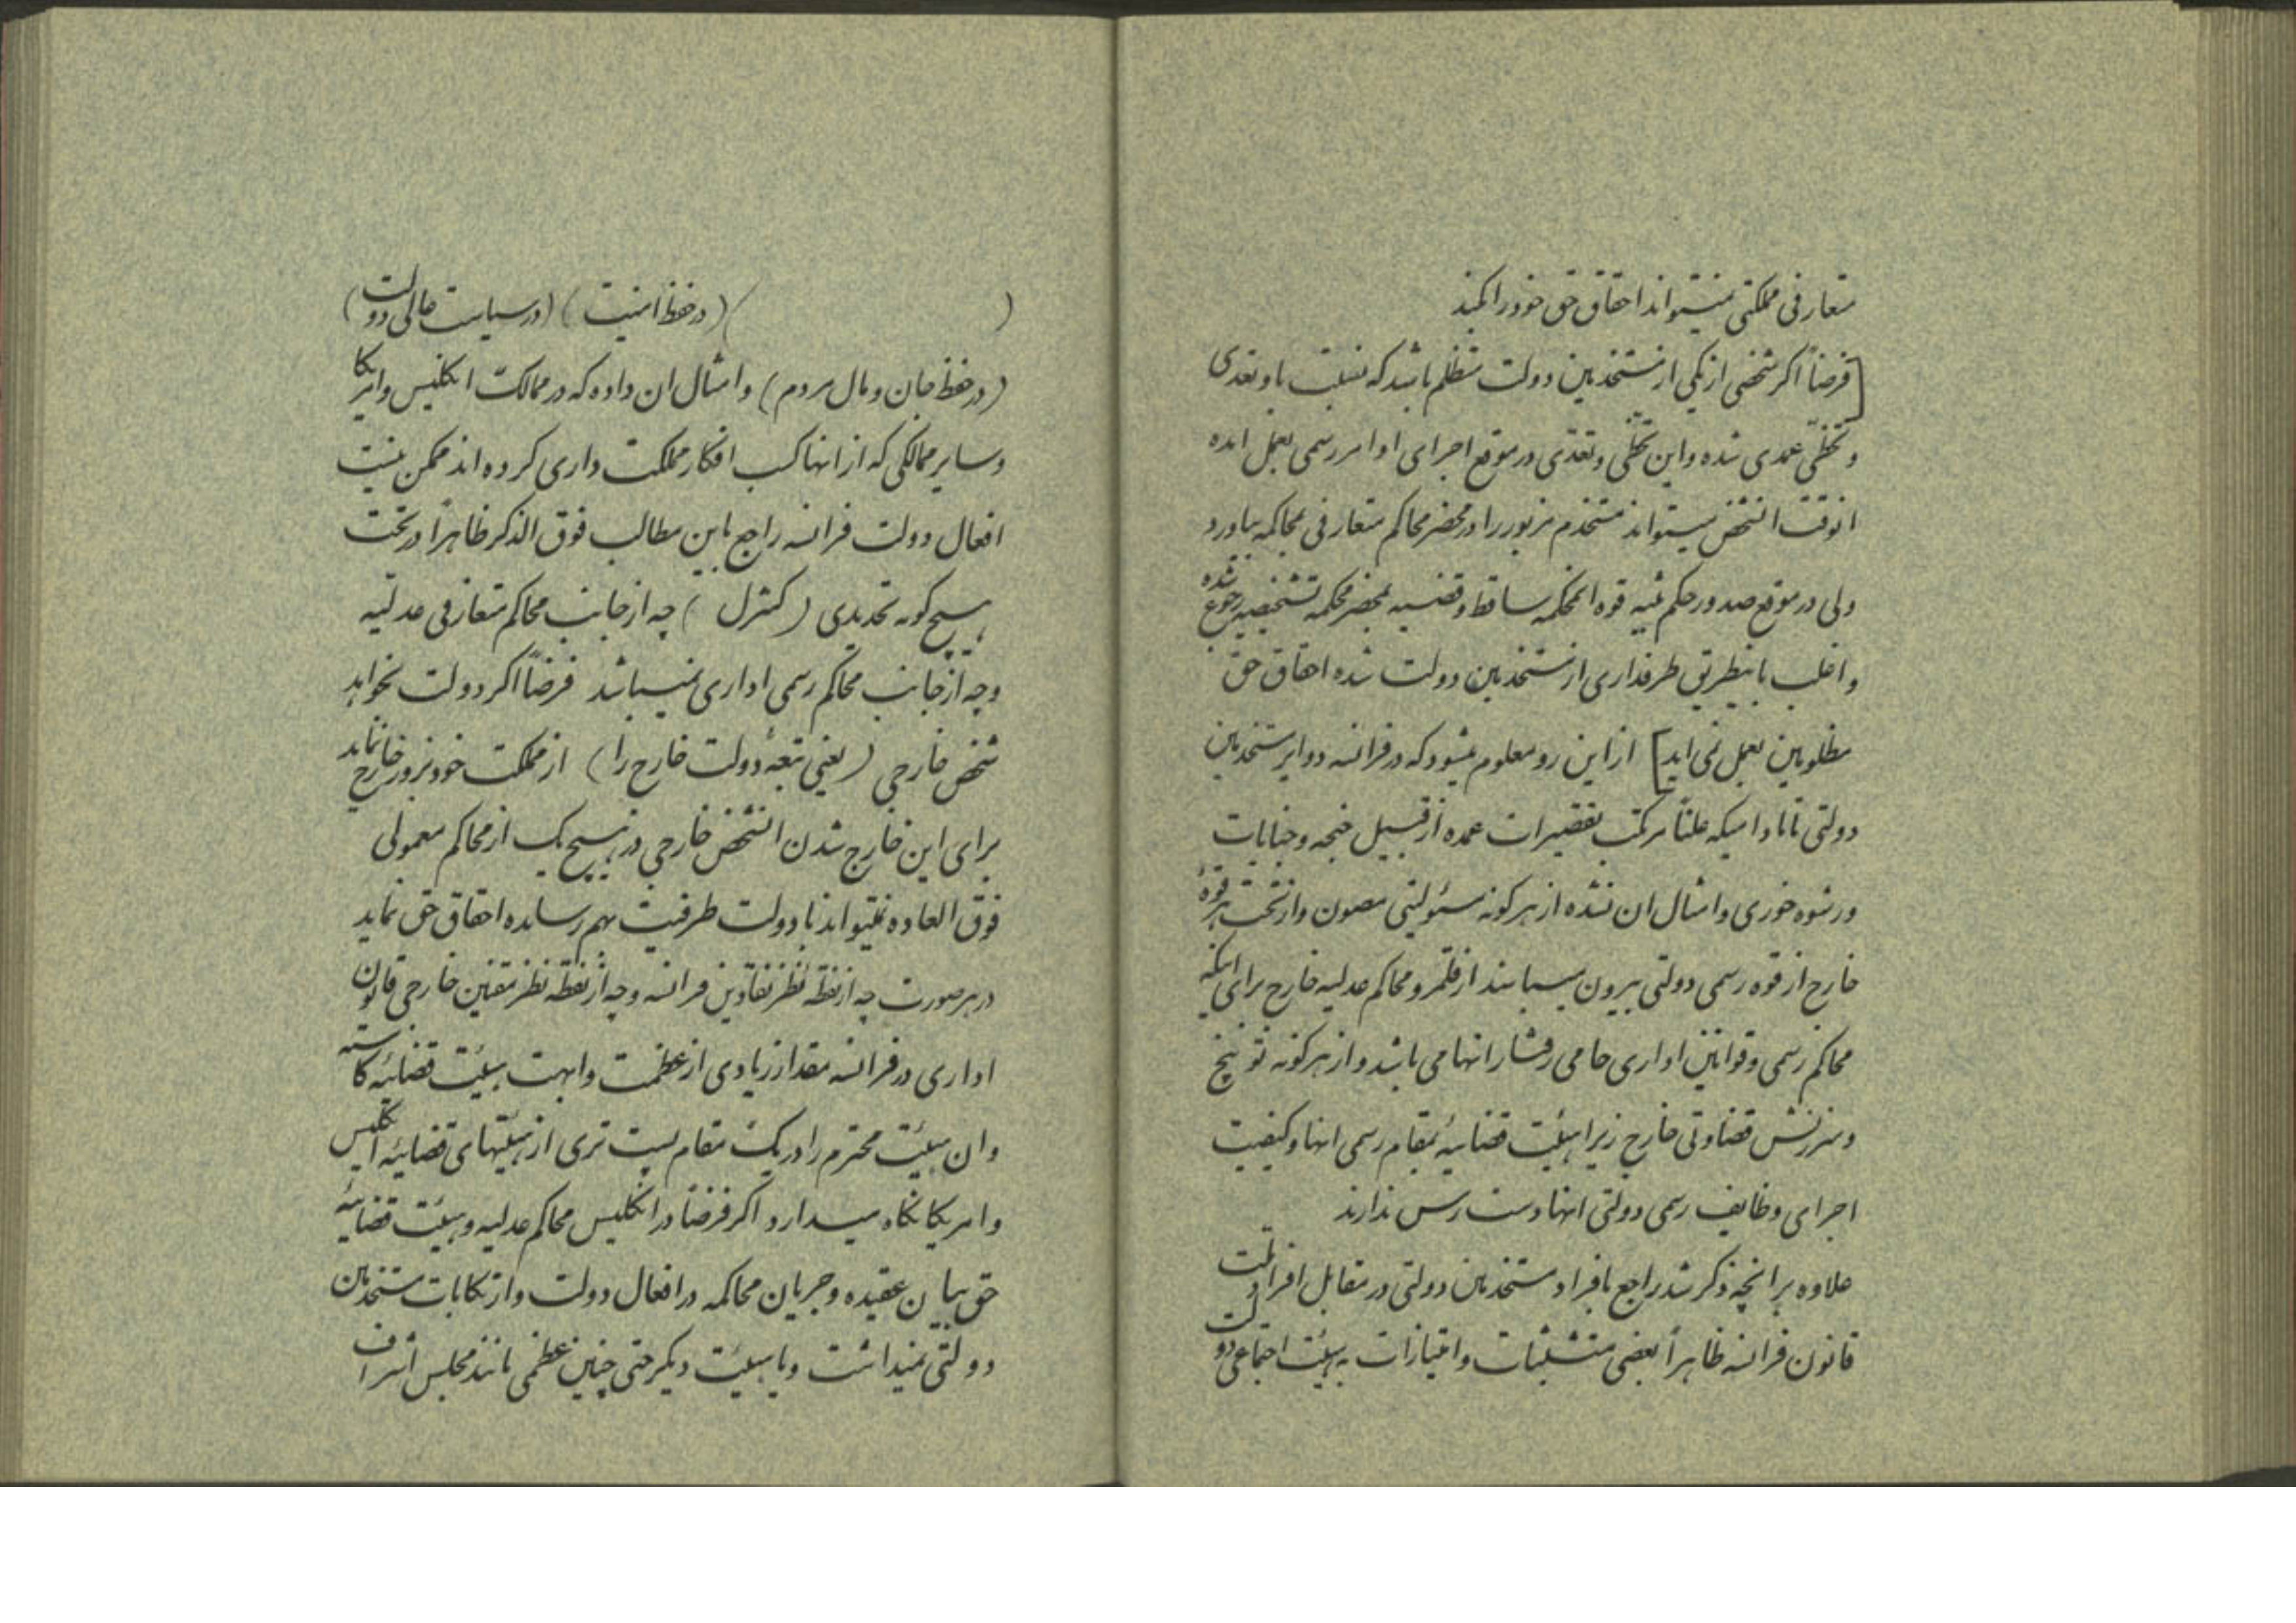 متعارفی مملکتی نمیتواند احقاق حق خود را کنید
[فرضاً اگر شخصی از یکی از مستخدمین دولت متظلم باشد که نسبت باو تعدی
و تخطّی عمدی شده و این تخطّی و تعدّی در موقع اجرای اوامر رسمی بعمل امده
انوقت انشخص میتواند مستخدم مزبور را در محضر محاکم متعارفی بمحاکمه بیاورد
ولی در موقع صدور حکم قوه انمحکمه ساقط و قضیه بمحضر محکمه تشخیصیه رجوع شده
و اغلب باینطریق طرفداری از مستخدمین دولت شده احقاق حق
مظلومین بعمل نمی اید] از این رو معلوم میشود که در فرانسه دوایر مستخدمین
دولتی تا مادامیکه علناً مرتکب تقصیرات عمده از قبیل جنحه و جنایات
و رشوه خوری و امثال ان نشده از هر گونه مسئولیتی مصون و از تحت هر قوهٔ
خارج از قوه رسمی دولتی بیرون میباشند از قلمرو محاکم عدلیه خارج برای اینکه
محاکم رسمی و قوانین اداری حامی رفتار انها می باشد و از هر گونه توبیخ
و سرزنش قضاوتی خارج زیرا هیئت قضائیه بمقام رسمی انها و کیفیت
اجرای وظایف رسمی دولتی انها دست رس ندارند
علاوه بر انچه ذکر شد راجع بافراد مستخدمین دولتی در مقابل افراد ملت
قانون فرانسه ظاهراً بعضی مستثنیات و امتیازات به هیئت اجتماعی دولت
( ) (در حفظ امنیت) (در سیاست عالی دولت)
(در حفظ جان و مال مردم) و امثال ان داده که در ممالک انگلیس و امریکا
و سایر ممالکی که از انها کسب افکار مملکت داری کرده اند ممکن نیست
افعال دولت فرانسه راجع باین مطالب فوق الذکر ظاهراً در تحت
هیچ گونه تحدیدی (کنترل ) چه از جانب محاکم متعارفی عدلیه
و چه از جانب محاکم رسمی اداری نمیباشد فرضاً اگر دولت بخواهد
شخص خارجی (یعنی تبعهٔ دولت خارج را) از مملکت خود بزور خارج نماید
برای این خارج شدن انشخص خارجی در هیچ یک از محاکم معمولی
فوق العاده نمیتواند با دولت طرفیت بهم رسانده احقاق حق نماید
در هر صورت چه از نقطه نظر فرانسه و چه از نقطه نظر مقننین خارجی قانون
اداری در فرانسه مقدار زیادی از عظمت و ابهت هیئت قضائیه کاسته
و ان هیئت محترم را در یک مقام پست تری از هیئتهای قضائیه انگلیس
و امریکا نگاه میدارد اگر فرضاً در انگلیس محاکم عدلیه و هیئت قضائیهٔ
حق بیان عقیده و جریان محاکمه در افعال دولت و ارتکابات مستخدمین
دولتی نمیداشت و یا هیئت دیگر حتی چنین عظمی مانند مجلس اشراف